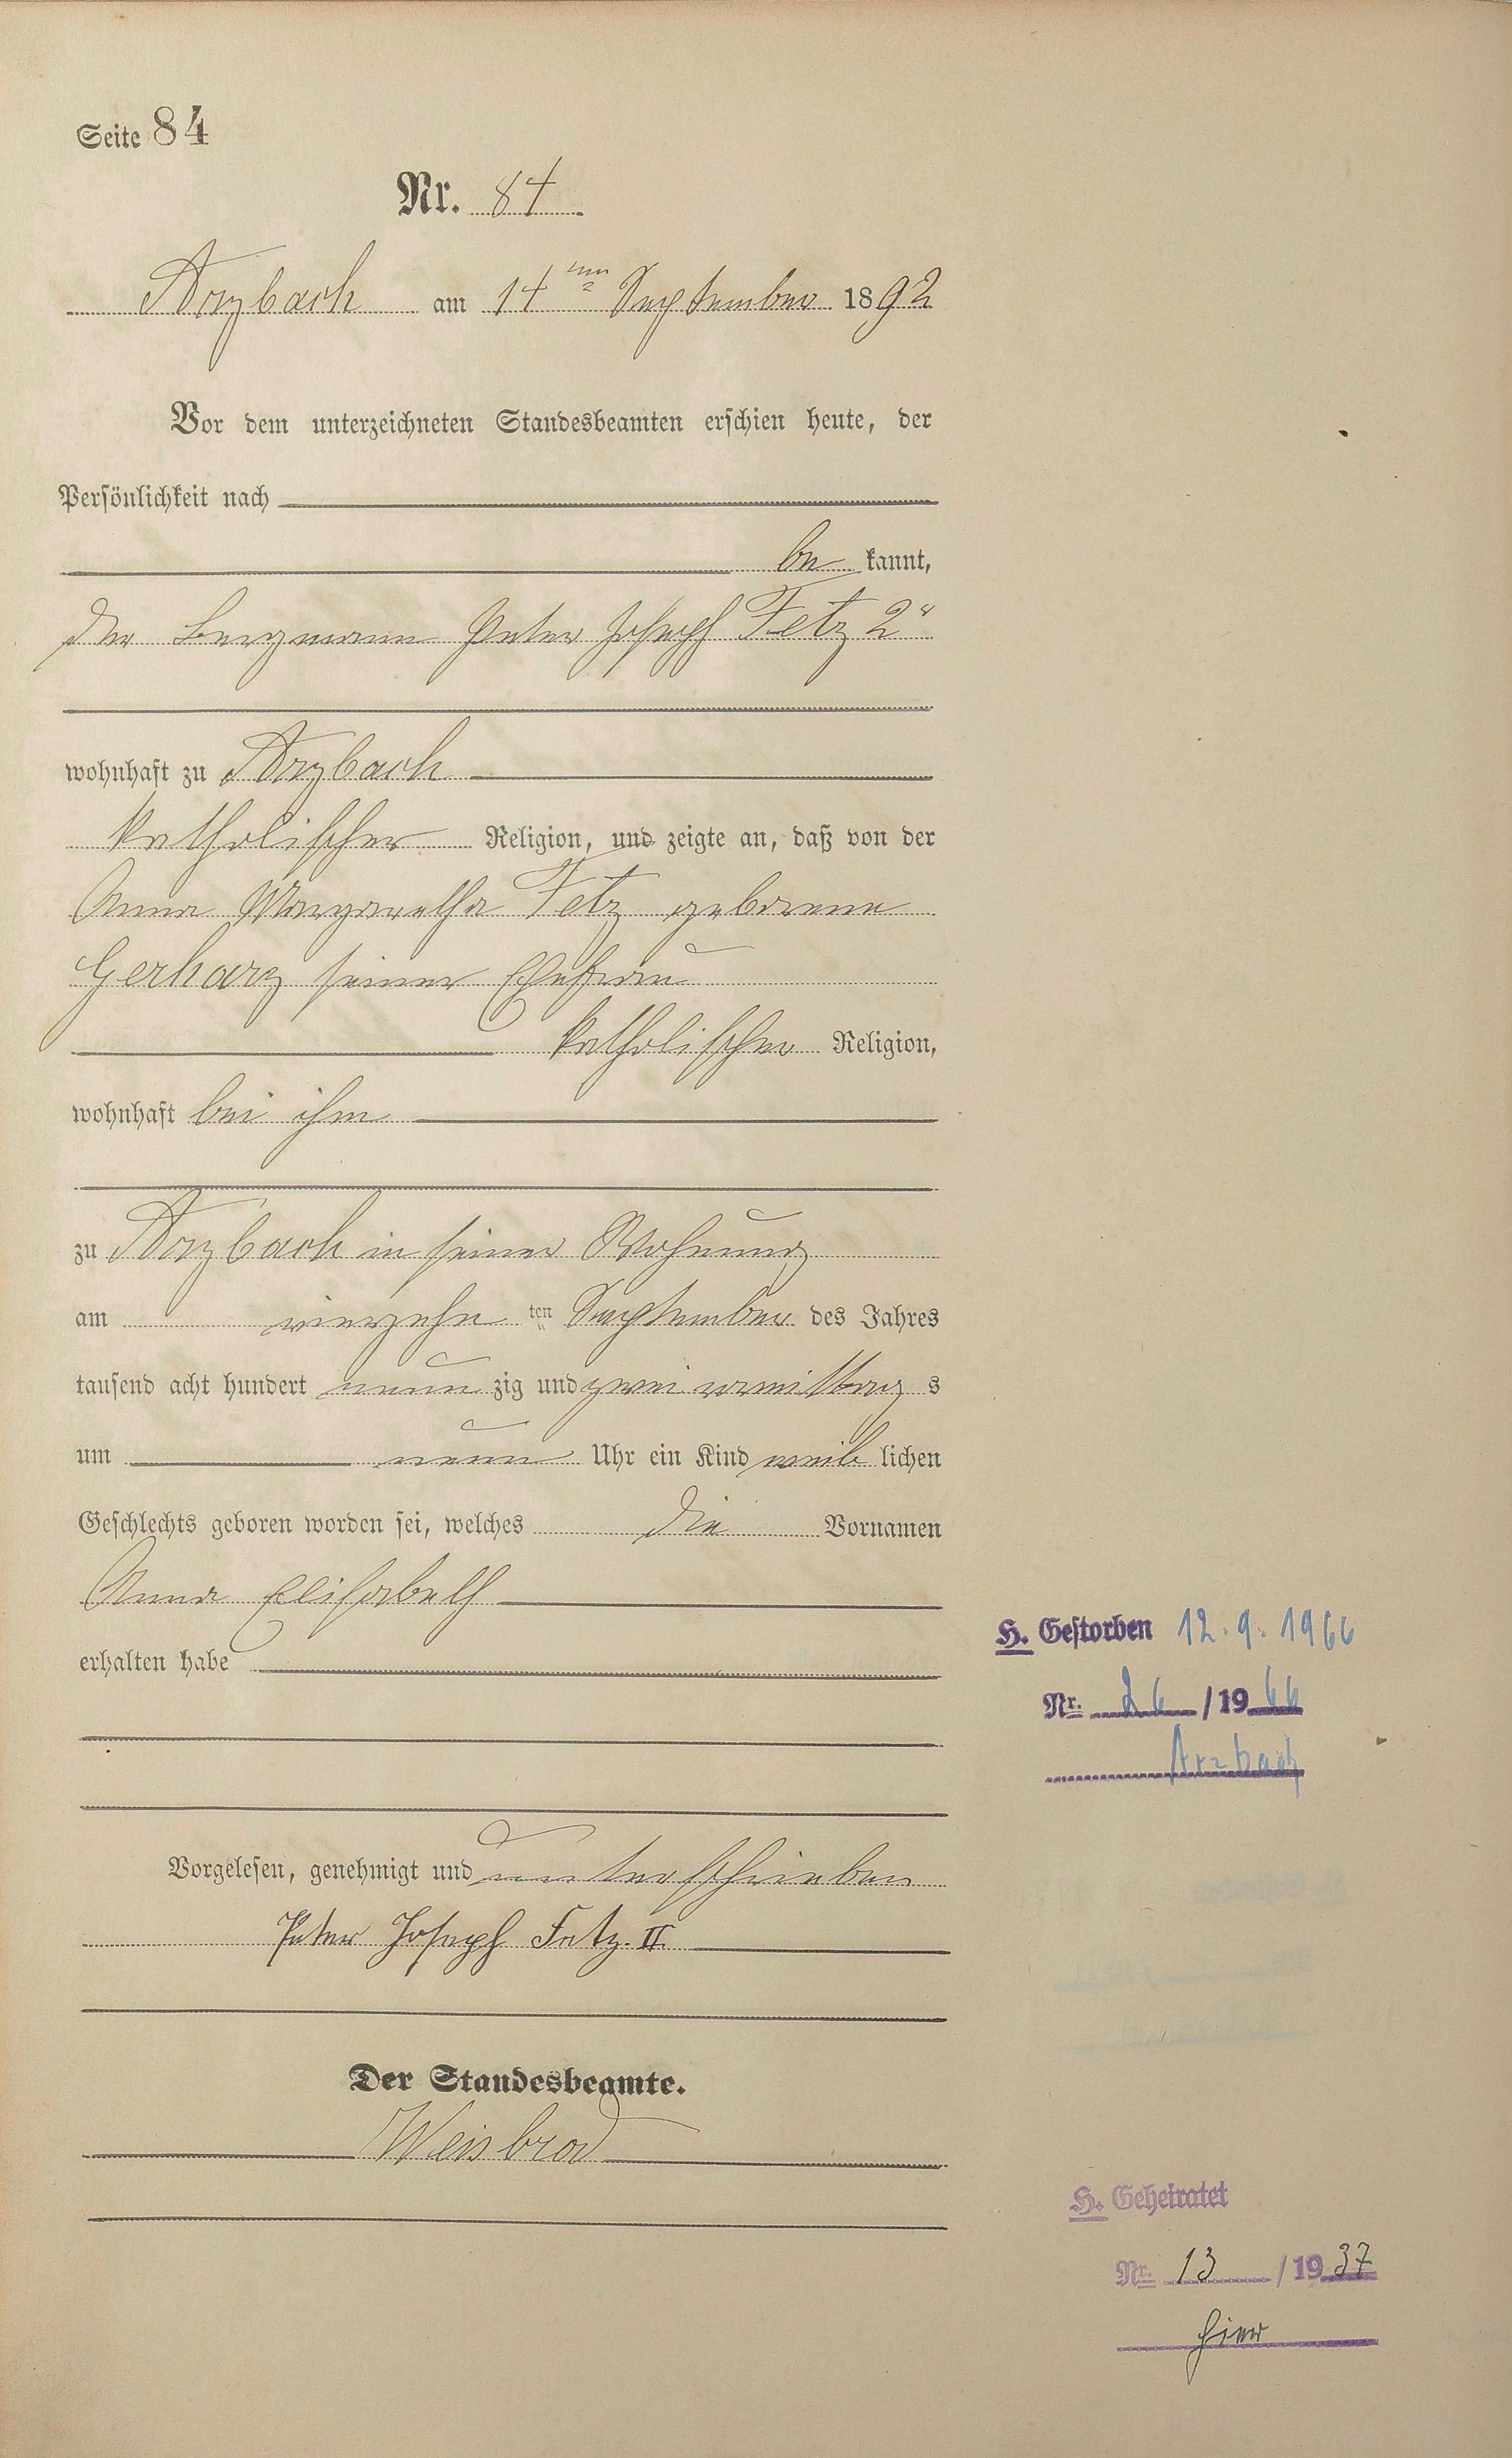 Seite 84
Nr. 84
Arzbach am 14ten September 1892
Vor dem unterzeichneten Standesbeamten erschien heute, der
Persönlichkeit nach
be kannt,
der Bergmann Peter Joseph Fetz 2r
wohnhaft zu Arzbach
katholischer Religion, und zeigte an, daß von der
Anna Margaretha Fetz geborene
Gerharz seiner Ehefrau
katholischer Religion,
wohnhaft bei ihm
zu Arzbach in seiner Wohnung
am vierzehn ten September des Jahres
tausend acht hundert neun zig und zwei vormittag s
um neun Uhr ein Kind weib lichen
Geschlechts geboren worden sei, welches die Vornamen
Anna Elisabeth
erhalten habe
H. Gestorben 12.9.1966
Nr. 26 / 1966
Arzbach
Vorgelesen, genehmigt und unterschrieben
Peter Joseph Fetz. II.
Der Standesbeamte.
Weisbrod
H. Geheiratet
Nr. 13 / 1937
hier